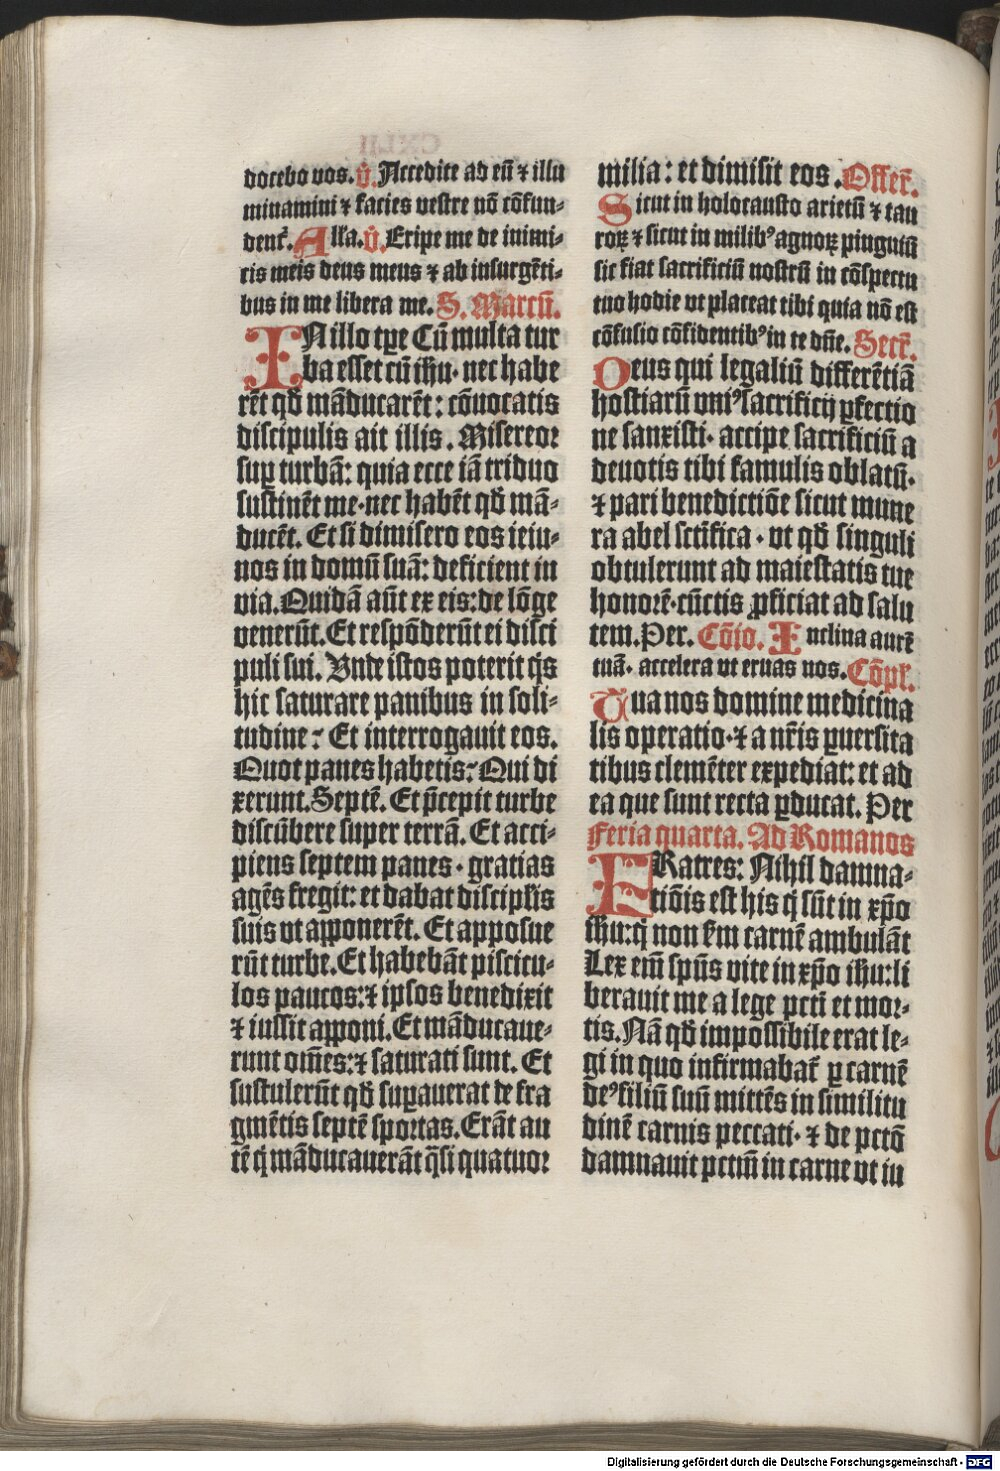 docebo vos. v̄. Accedite ad eū ⁊ illu
minamini ⁊ facies vestre nō cōfun-
dent᷑. All'a. v̄. Eripe me de inimi-
cis meis deus meus ⁊ ab insurgēti-
bus in me libera me. S. Marcū.
IN illo tpe Cū multa tur
ba esset cū ihu· nec habe
rēt qd̄ māducarēt: cōuocatis
discipulis ait illis. Misereor
suꝑ turbā: quia ecce iā triduo
sustinēt me· nec habēt qd̄ mā-
ducēt. Et si dimisero eos ieiu-
nos in domū suā: deficient in
via. Quidā aūt ex eis: de lōge
venerūt. Et respōderūt ei disci
puli sui. Unde istos poterit qͥs
hic saturare panibus in soli-
tudine? Et interrogauit eos.
Quot panes habetis? Qui di
xerunt. Septē. Et p̄cepit turbe
discūbere super terrā. Et acci-
piens septem panes · gratias
agēs fregit: et dabat discipl̄is
suis vt apponerēt. Et apposue
rūt turbe. Et habebāt piscicu-
los paucos: ⁊ ipsos benedixit
⁊ iussit apponi. Et māducaue-
runt om̄es: ⁊ saturati sunt. Et
sustulerūt qd̄ suꝑauerat de fra
gmētis septē sportas. Erāt au
tē q̇ māducauerāt q̄si quatuor
milia: et dimisit eos. Offer᷑.
Sicut in holocausto arietū ⁊ tau
roꝝ ⁊ sicut in milibꝰ agnoꝝ pinguiū
sic fiat sacrificiū nostrū in cōspectu
tuo hodie vt placeat tibi quia nō est
cōfusio cōfidentibꝰ in te dn̄e. Secr᷑.
Deus qui legaliū differētiā
hostiarū vniꝰ sacrificij ꝑfectio
ne sanxisti· accipe sacrificiū a
deuotis tibi famulis oblatū·
⁊ pari benedictiōe sicut mune
ra abel sctīfica · vt qd̄ singuli
obtulerunt ad maiestatis tue
honorē· cūctis ꝓficiat ad salu
tem. Per. Cōio. Inclina aurē
tuā· accelera vt eruas nos. Cōpl᷑.
Tua nos domine medicina
lis operatio· ⁊ a nr̄is ꝑuersita
tibus clemēter expediat: et ad
ea que sunt recta ꝑducat. Per
Feria quarta. Ad Romanos
FRatres: Nihil damna-
tiōis est his q̇ sūt in xp̄o
ihu: q̇ non ẜm carnē ambulāt
Lex em̄ spūs vite in xp̄o ihu: li
berauit me a lege pcti et mor-
tis. Nā qd̄ impossibile erat le-
gi in quo infirmabat᷑ ꝑ carnē
deꝰ filiū suū mittēs in similitu
dinē carnis peccati· ⁊ de pctō
damnauit pctm̄ in carne vt iu
Digitalisierung gefördert durch die Deutsche Forschungsgemeinschaft - DFG